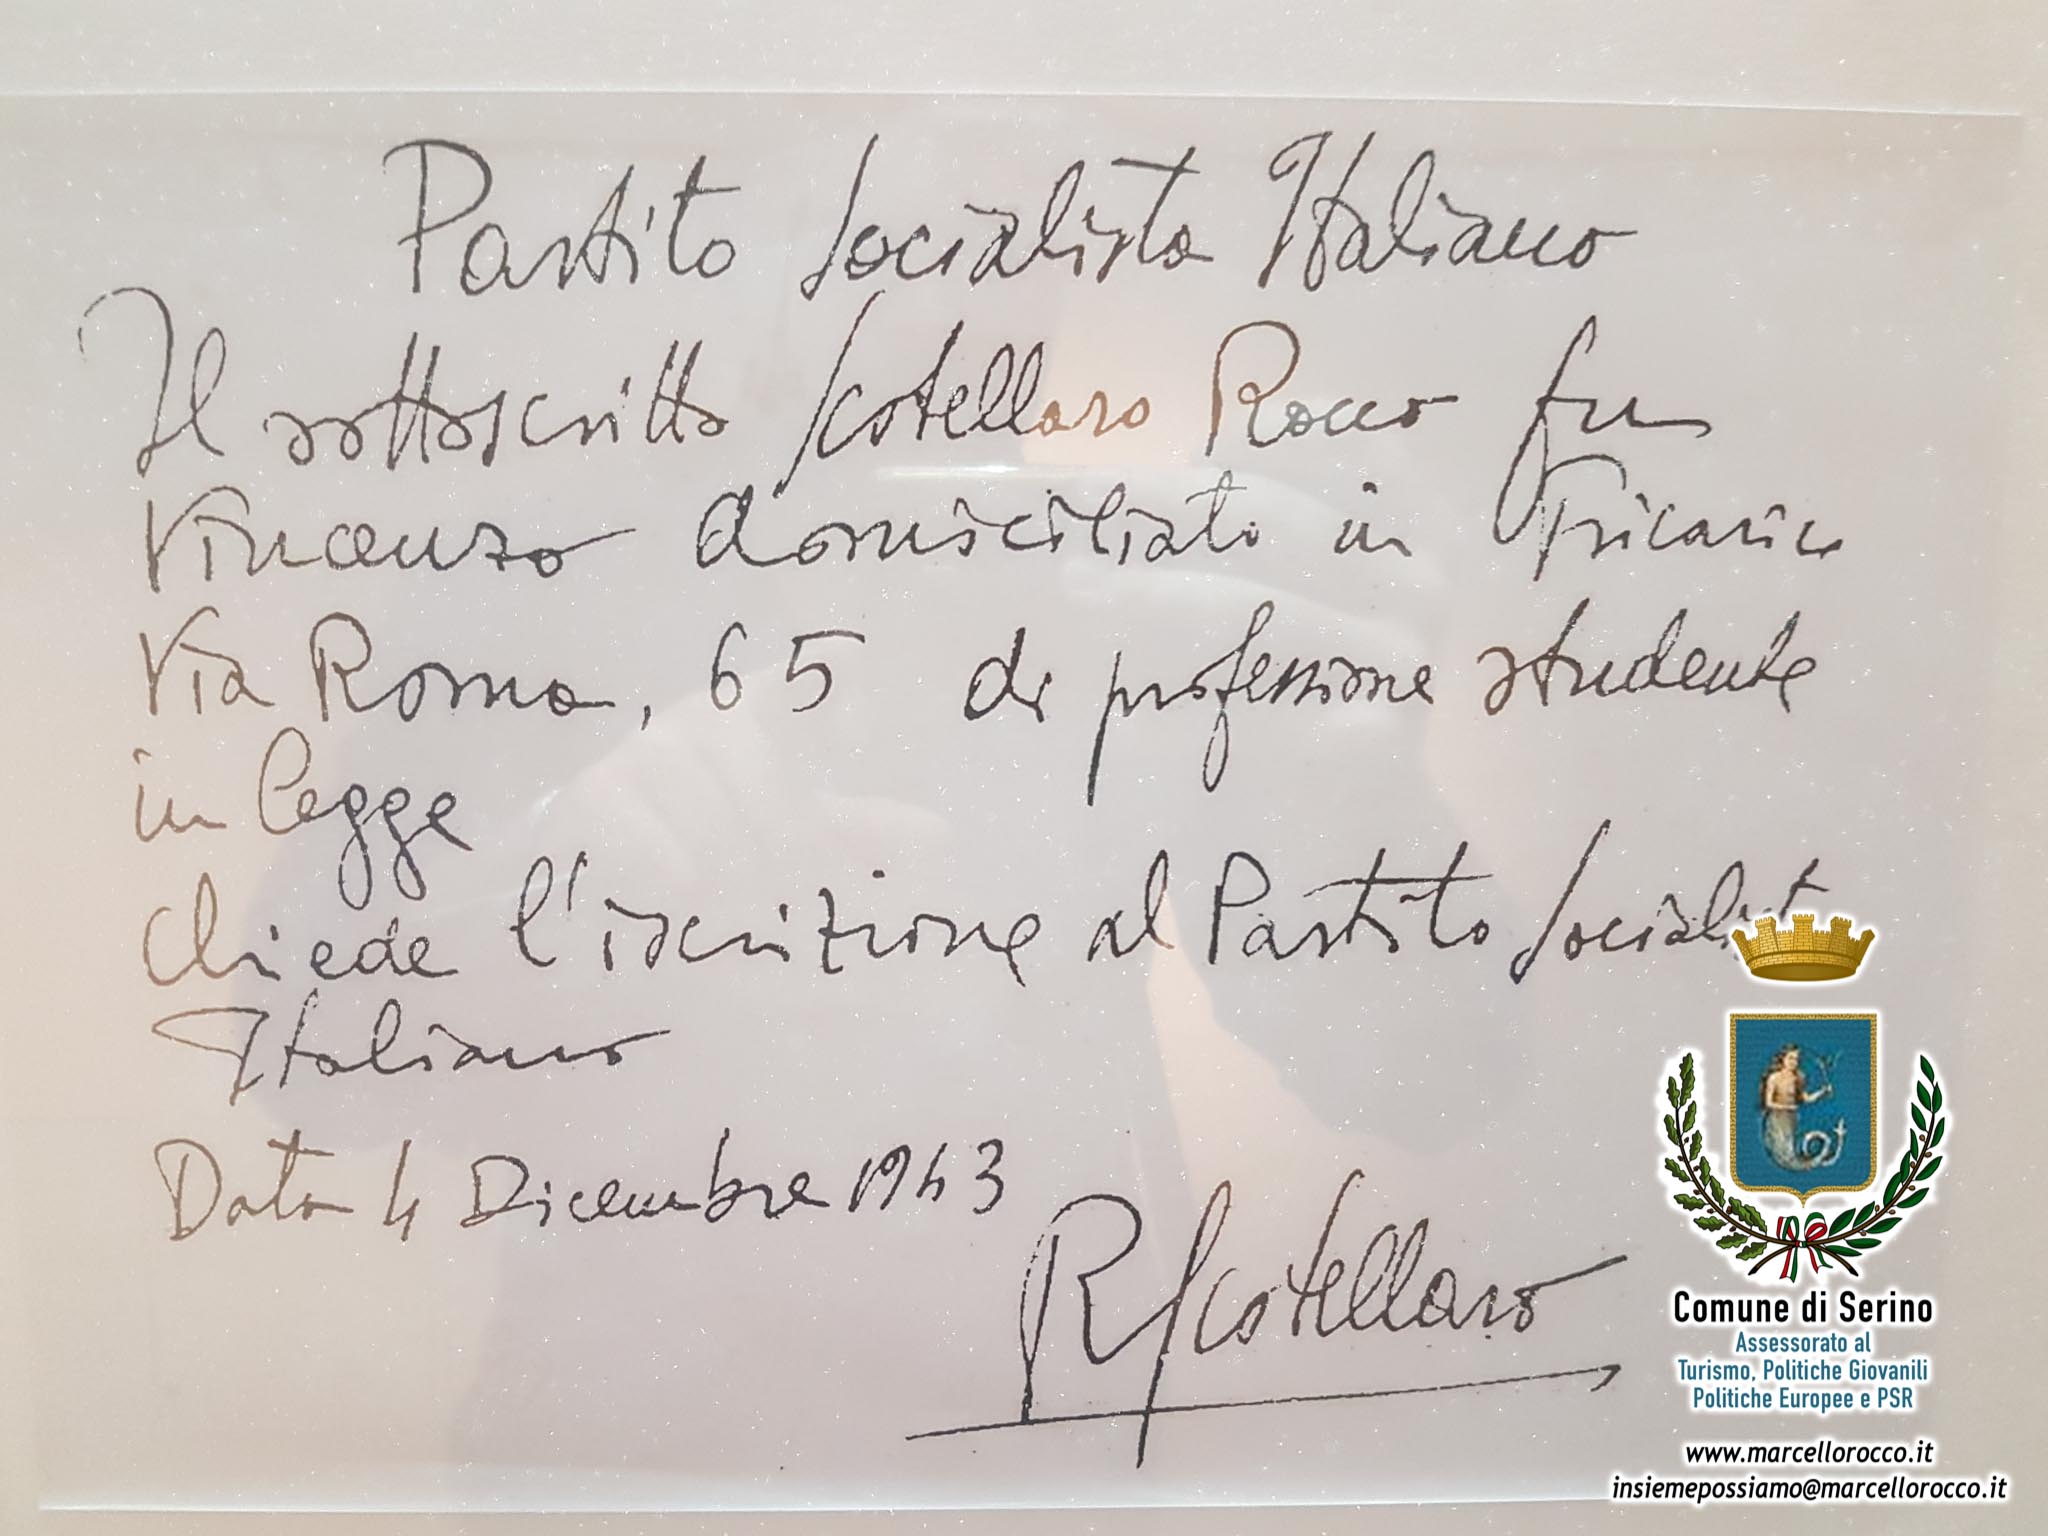 Partito Socialista Italiano
Il sottoscritto Scotellaro Rocco fu
Vincenzo domiciliato in Tricarico
Via Roma, 65 di professione studente
in legge
chiede l'iscrizione al Partito Socialist
Italiano
Data 4 Dicembre 1943
RScotellaro
Comune di Serino
Assessorato al
Turismo, Politiche Giovanili
Politiche Europee e PSR
www.marcellorocco.it
insiemepossiamo@marcellorocco.it